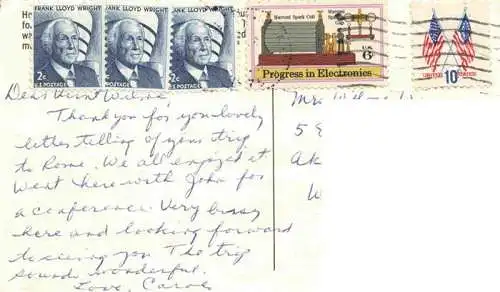 FRANK LLOYD WRIGHT
ANK LLOYD WRIGHT
ANK LLOYD WRIGHT
2c
2c
2c
U.S. POSTAGE
U.S. POSTAGE
U.S. POSTAGE
Marconi Spark Coil
Marconi's Spark
U.S.
6c
Progress in Electronics
UNITED STATES
10c
He
fo
m
Dear Aunt Wilma,
Thank you for your lovely
letter telling of your trip
to Rome. We all enjoyed it.
Went here with John for
a conference. Very busy
here and looking forward
to seeing you. The trip
sounds wonderful.
Love, Carol
Mrs Wilma
5 E
Ak
W